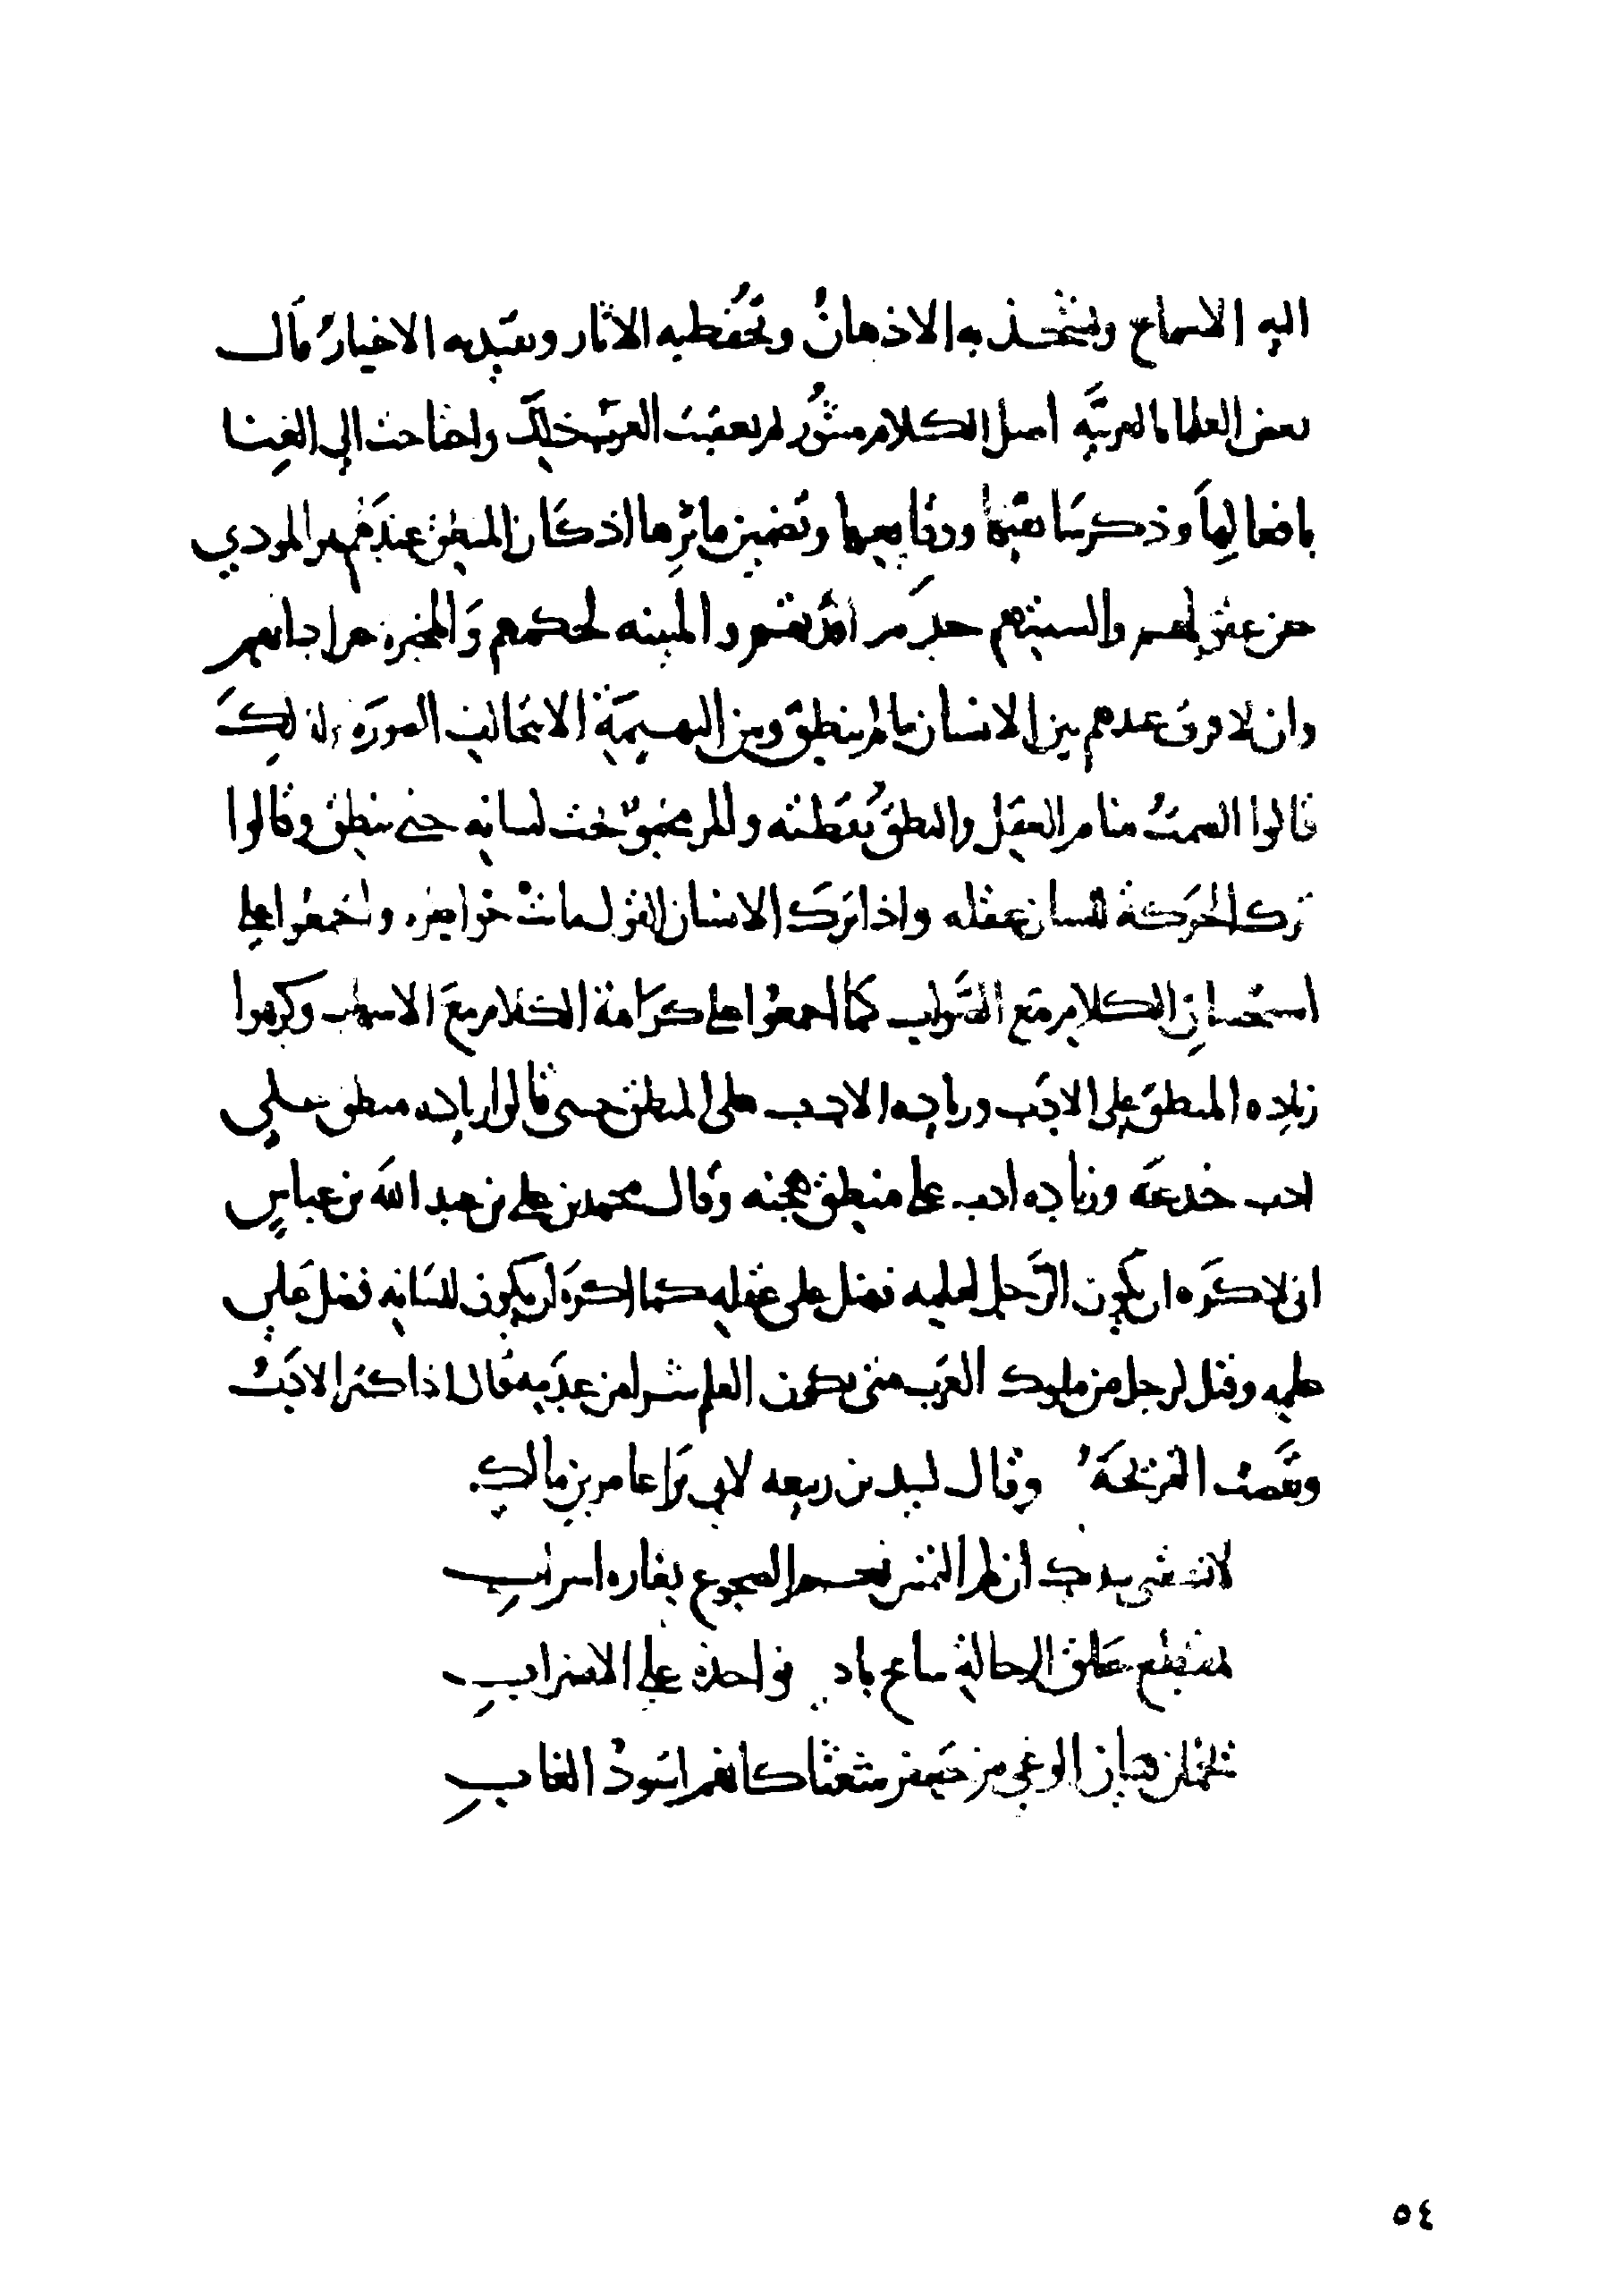 اليه الاسماع وتشحذ به الاذهانُ وتحُفظ به الاثار وتقيّد به الاخبارُ قال
بعض العلما بالعربيَّه اصل الكلام منثورُ ثم تعقبت العربُ ذلك واحتاجت الى الغنا
بافعالها وذكر سابقتها ووقايعها وتضمين ماثرها اذ كان المنطق عندهم هو المودي
عن عقولهم والسنتهم خدم افئدتهم والمبينه لحكمهم والمخبره عن ادابهم
وان لا فرق عندهم بين الانسان ما لم ينطق وبين البهيمة الا بتخالف الصورة ولذلك
قالوا الصمتُ منام العقل والنطقُ يقظته والمر مخبوّ تحت لسانه حتى ينطق وقالوا
ترك الحركة للسان عقله واذا ترك الانسان القول ماتت خواطره واجمعوا على
استحسان الكلام مع الصَّواب كما اجمعوا على كراهة الكلام مع الاسهاب وكرهوا
زياده المنطق على الادب وزياده الادب على المنطق حتى قالوا زياده منطق على
ادب خدعه وزياده ادب على منطق هجنه وقال محمد بن علي بن عبد الله بن عباس
اني لاكره ان يكون الرَّجل لعلمه فضل على عقله كما اكره ان يكون للسانه فضل على
علمه وقيل لرجل من ملوك العرب متى يكون العلم شرا من عدمه قال اذا كثر الادبُ
ونقصت القريحة وقال لبيد بن ربيعه لابي برا عامر بن مالك
بغاره اسراب
على الاضراب
شعثا كانهم اسود الغاب
٥٤